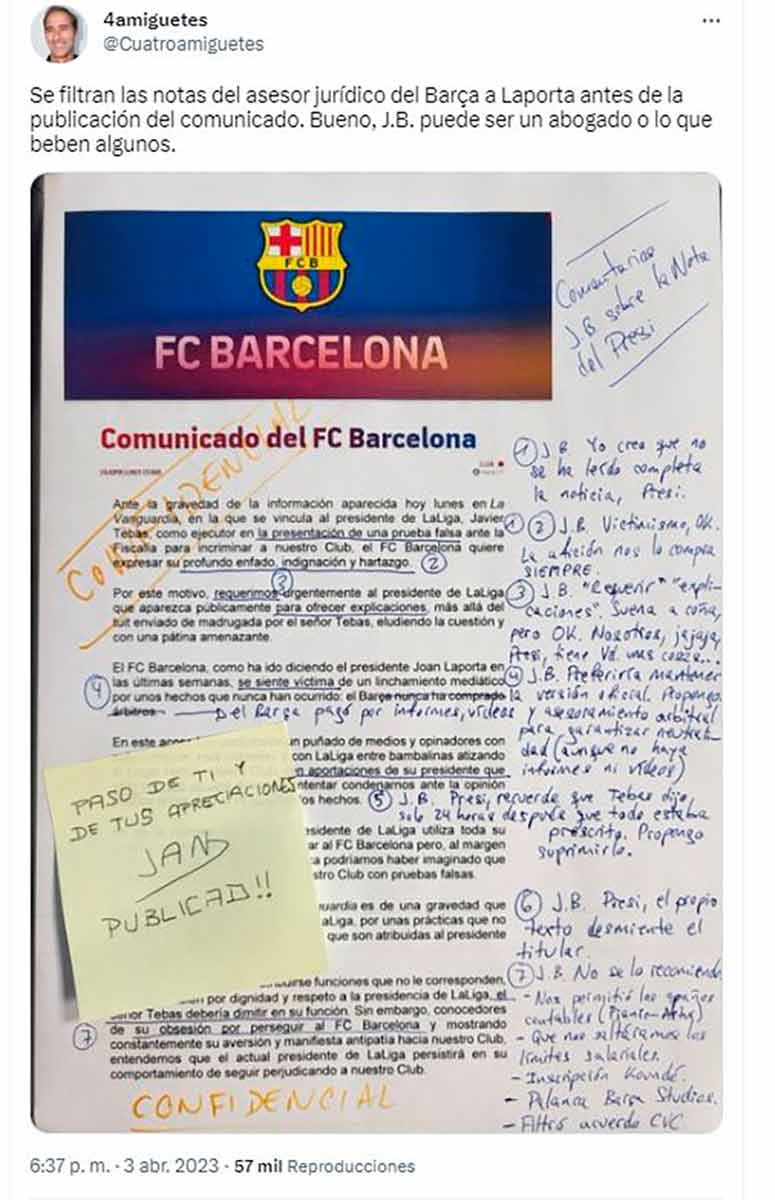 4amiguetes
@Cuatroamiguetes
Se filtran las notas del asesor jurídico del Barça a Laporta antes de la
publicación del comunicado. Bueno, J.B. puede ser un abogado o lo que
beben algunos.
FCB
FC BARCELONA
Comentarios
J.B sobre la Nota
del Presi
Comunicado del FC Barcelona
CONFIDENCIAL
Ante la gravedad de la información aparecida hoy lunes en La
Vanguardia, en la que se vincula al presidente de LaLiga, Javier
Tebas, como ejecutor en la presentación de una prueba falsa ante la
Fiscalía para incriminar a nuestro Club, el FC Barcelona quiere
expresar su profundo enfado, indignación y hartazgo. 2
3
Por este motivo, requerimos urgentemente al presidente de LaLiga
que aparezca públicamente para ofrecer explicaciones, más allá del
tuit enviado de madrugada por el señor Tebas, eludiendo la cuestión y
con una pátina amenazante.
4
El FC Barcelona, como ha ido diciendo el presidente Joan Laporta en
las últimas semanas, se siente víctima de un linchamiento mediático
por unos hechos que nunca han ocurrido: el Barça nunca ha comprado
árbitros
El Barça pagó por informes, vídeos
En este
un puñado de medios y opinadores con
con LaLiga entre bambalinas atizando
aportaciones de su presidente que
intentar condenarnos ante la opinión
os hechos.
esidente de LaLiga utiliza toda su
ar al FC Barcelona pero, al margen
ca podríamos haber imaginado que
stro Club con pruebas falsas.
uardia es de una gravedad que
aLiga, por unas prácticas que no
que son atribuidas al presidente
funciones que no le corresponden,
por dignidad y respeto a la presidencia de LaLiga, el
señor Tebas debería dimitir en su función. Sin embargo, conocedores
7 de su obsesión por perseguir al FC Barcelona y mostrando
constantemente su aversión y manifiesta antipatía hacia nuestro Club,
entendemos que el actual presidente de LaLiga persistirá en su
comportamiento de seguir perjudicando a nuestro Club.
CONFIDENCIAL
PASO DE TI Y
DE TUS APRECIACIONES
JAN
PUBLICAD!!
1 J.B Yo creo que no
se ha leído completa
la noticia, Presi.
1 2 J.B. Victimismo, OK.
La afición nos lo compra
SIEMPRE.
3 J.B. "Requerir" "expli-
caciones". Suena a coña,
pero OK. Nosotros, jajaja,
Presi, tiene Vd. unas cosas...
4 J.B. Preferiría mantener
la versión oficial. Propongo
y asesoramiento arbitral
para garantizar neutrali-
dad (aunque no haya
informes ni vídeos)
5 J.B. Presi, recuerde que Tebas dijo
solo 24 horas después que todo estaba
prescrito. Propongo
suprimirlo.
6 J.B. Presi, el propio
texto desmiente el
titular.
7 J.B. No se lo recomiendo
- Nos permitió los apaños
contables (Pjanic-Arthur)
- Que nos saltáramos los
límites salariales.
- Inscripción Koundé.
- Palanca Barça Studios.
- Filtró acuerdo CVC
6:37 p. m. · 3 abr. 2023 · 57 mil Reproducciones